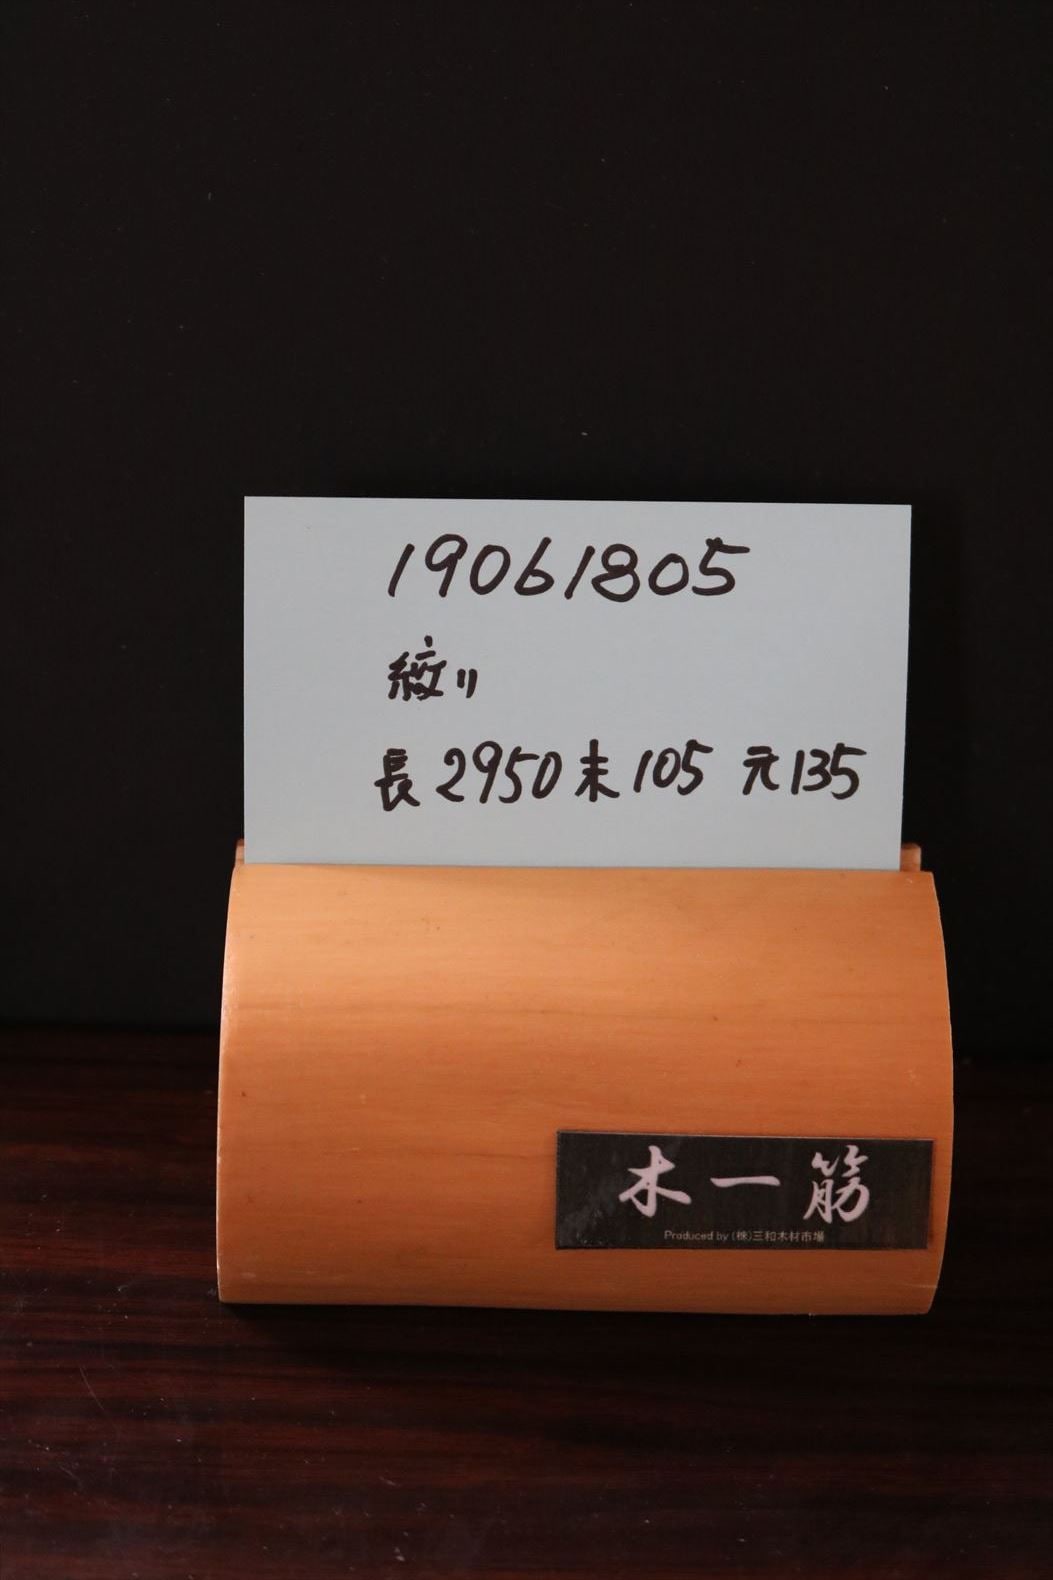 19061805
絞り
長2950 末105 元135
木一筋
Produced by (株)三和木材市場